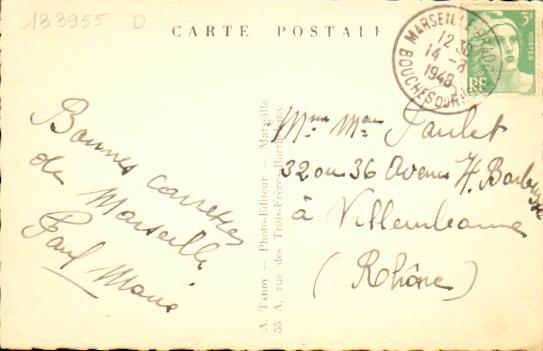 133955 D
CARTE POSTALE
MARSEILLE
12 30
14 - 8
1948
BOUCHES DU RHONE
3F
POSTES
RF
Bonnes caresses
de Marseille
Paul Marie
A. TARDY — Photo-Editeur — Marseille
55 A, rue des Trois-Frères-Barthélemy
Mme Paulet
32 ou 36 Avenue H. Barbusse
à Villeurbanne
(Rhône)